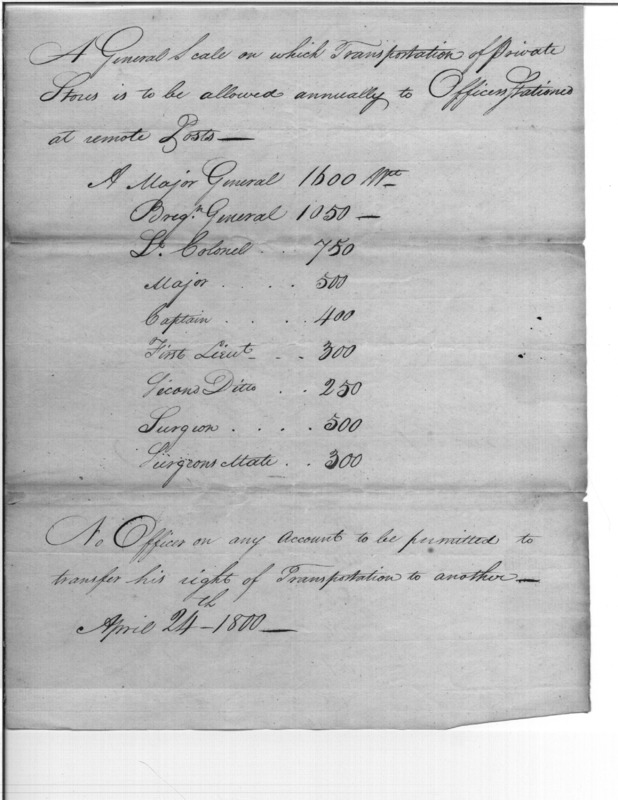 A General Scale on which Transportation of Private
Stores is to be allowed annually to Officers Stationed
at remote Posts —
A Major General 1600 Wt
Brigr. General 1050 —
Lt. Colonel . . 750
Major . . . . 500
Captain . . . . 400
First Lieut - . . 300
Second Ditto . . 250
Surgeon . . . . 500
Surgeons Mate . . 300
No Officer on any account to be permitted to
transfer his right of Transportation to another —
April 24th – 1800 —